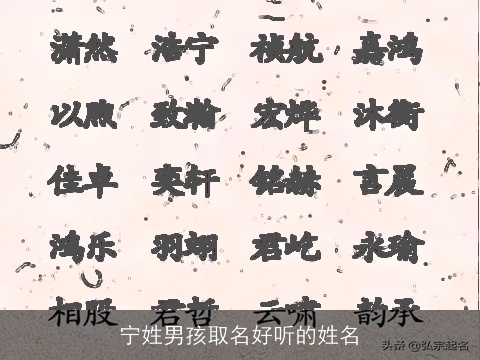 潇然 浩宁 祯航 嘉鸿
以煦 致瀚 宏烨 沐衡
佳卓 奕轩 铭赫 言晨
鸿乐 羽翊 君屹 永瑜
相股 君哲 云啸 韵承
宁姓男孩取名好听的姓名
头条 @弘宗起名